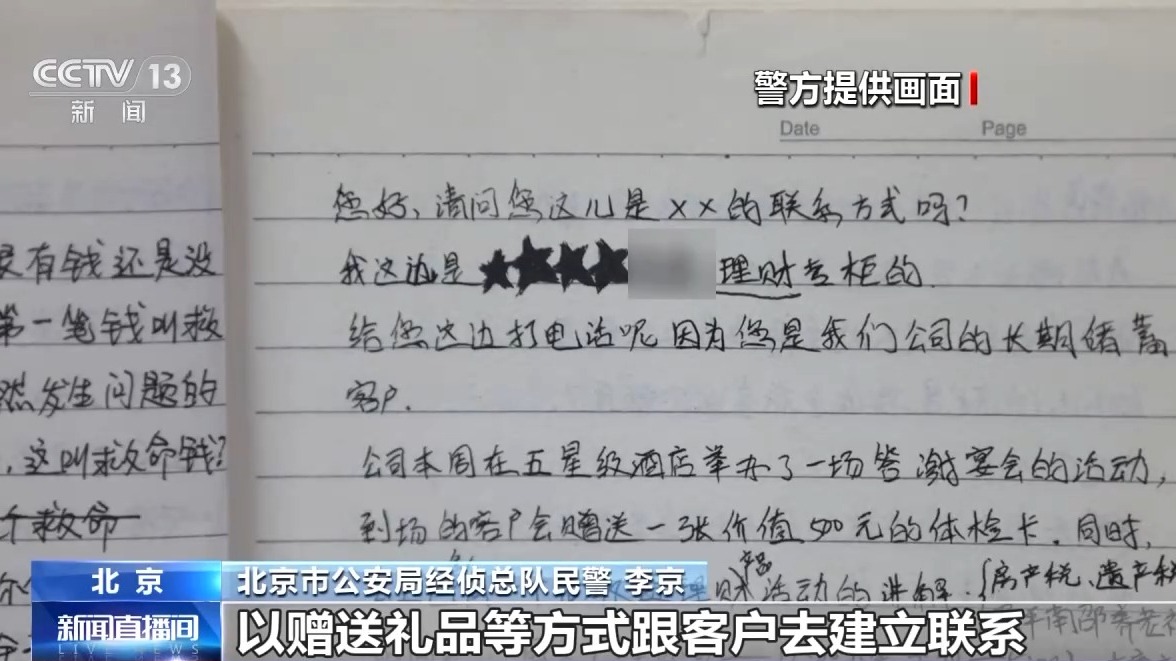 CCTV 13
新闻
警方提供画面
Date Page
您好、请问您这儿是××的联系方式吗?
我这边是 理财专柜的.
给您这边打电话呢因为您是我们公司的长期储蓄
客户.
公司本周在五星级酒店举办了一场答谢宴会的活动,
到场的客户会赠送一张价值500元的体检卡.同时,
财产品活动的讲解.(房产税、遗产税
有钱还是没
第一笔钱叫救
然发生问题的
,这叫救命钱?
个救命
北京
北京市公安局经侦总队民警 李京
新闻直播间
LIVE NEWS
以赠送礼品等方式跟客户去建立联系